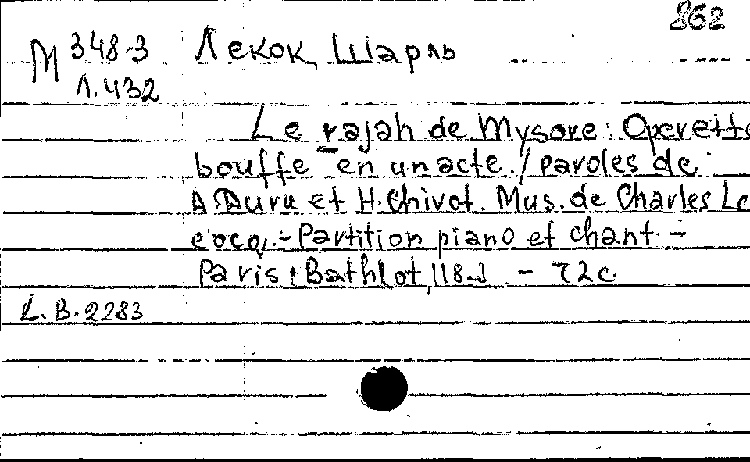 862
М 348-3 Лекок, Шарль
Л.432
Le rajah de Mysore: Operette
bouffe en un acte / paroles de
A Duru et H. Chivot. Mus. de Charles Le
cocq. - Partition piano et chant -
Paris: Bathlot, [18-] - 72 c
L.B.2283